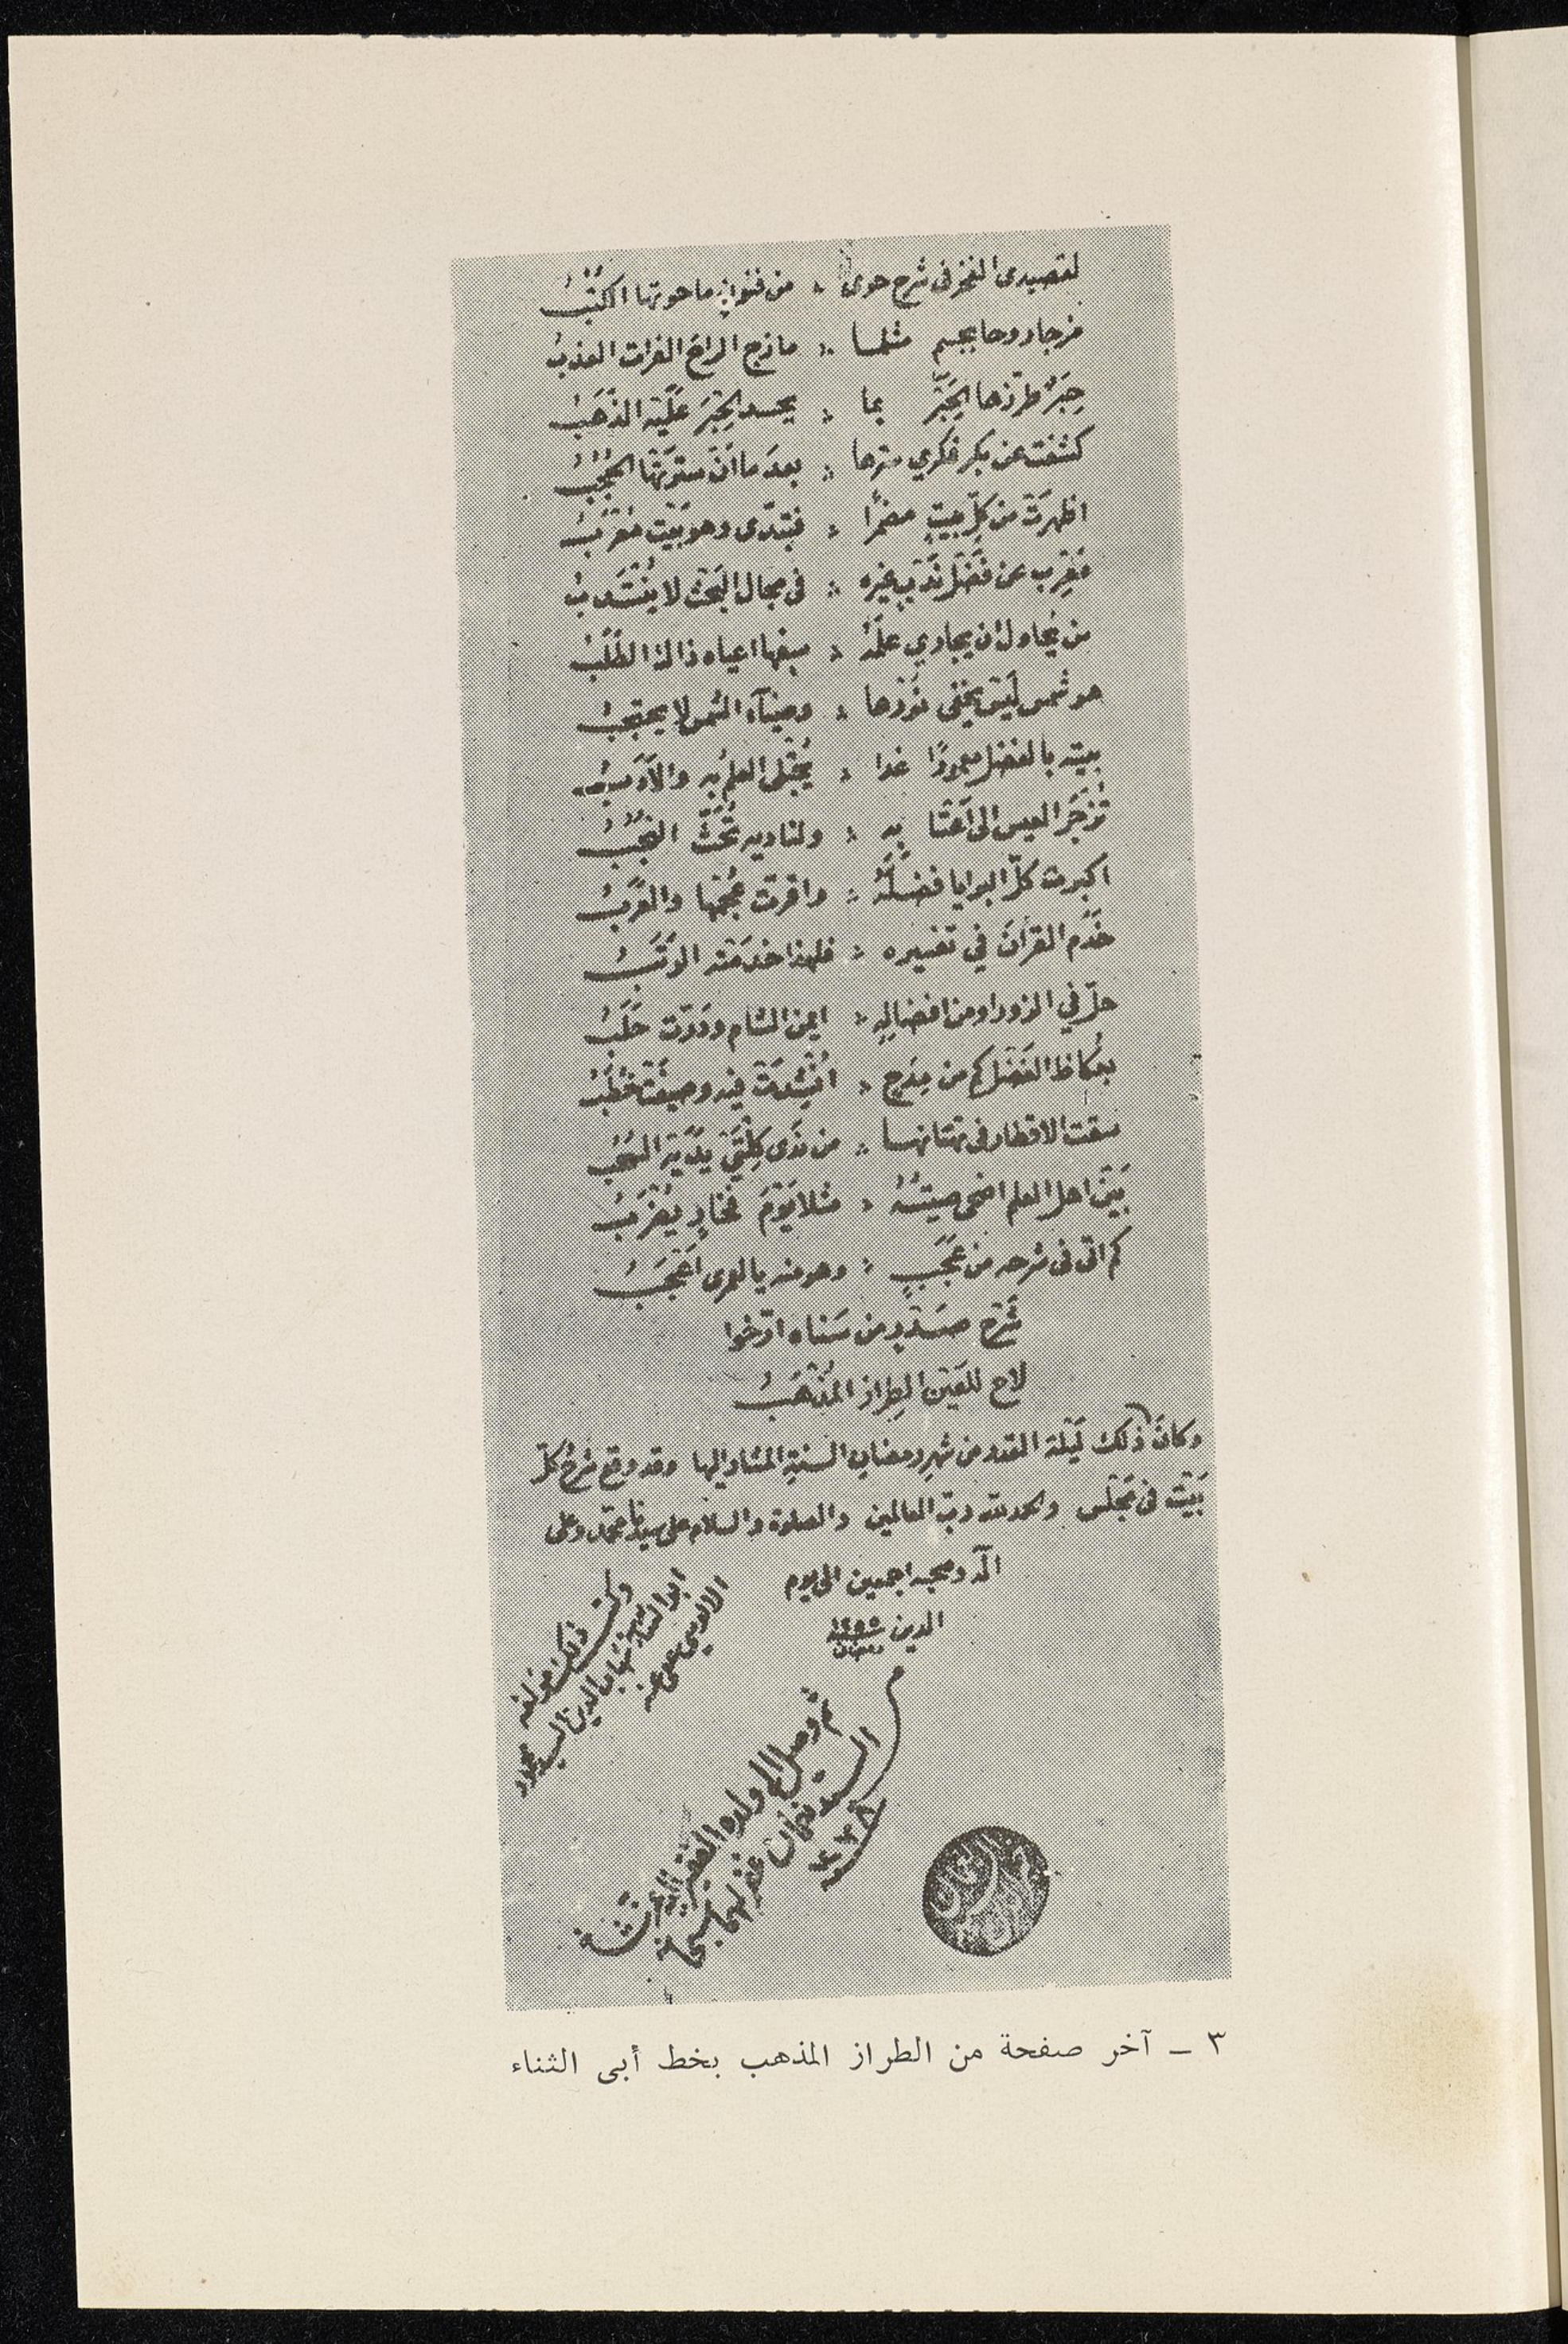 لقصيدى الفخر فى شرح حوى ؞ من فنون ما حوتها الكتُبُ
مزجا روحا بجسم مثلما ؞ مازج الراحَ الفرات العذبُ
حِبَرٌ طرّزها الحَبْرُ بما ؞ يحسد الحِبْرَ عليه الذَّهَبُ
كشفت عن بكر فكري سترها ؞ بعدَ ما ان سترتها الحُجُبُ
اظهرَتْ من كلِّ بيتٍ مضمرًا ؞ فتبدّى وهو بَيْت مُعْرَبُ
مُعْرِب عن فَضْل نَدْبٍ غيره ؞ فى مجال البَحْث لا يُنْتَدبُ
من يُحاول ان يجاري علمَهُ ؞ سفها اعياه ذاك الطَّلَبُ
هو شمس لَيْسَ يخفى نورها ؞ وضيآء الشمس لا يحتجبُ
بيته بالفضل معمورًا غدا ؞ يُجْتلى العلمُ به والأَدَبُ
تُزْجَرُ العيس الى اَعْتابِهِ ؞ ولناديه تُحَثُّ النُّجُبُ
اكبرت كلّ البرايا فضلَهُ ؞ واقرت عُجْمُها والعَرَبُ
خَدَم القرآنَ في تفسيره ؞ فلهذا خدمَتْه الرُّتَبُ
حلّ في الزورا ومن افضالِهِ ؞ ايمن الشام ودَرّت حَلَبُ
بعُكاظ الفَضْل كم من مِدَحٍ ؞ اُنْشِدَتْ فيه وصيغَتْ خُطَبُ
سقت الاقطار فى تهتانها ؞ من نَدَى كِلْتَيْ يَدَيْهِ السُّحُبُ
بَيْنَ اهل العلم اضحى صيتُهُ ؞ مثلا يَوْمَ فَخارٍ يُضْرَبُ
كم اتى فى شرحه من عَجَبٍ ؞ وهو منه يا لعمرى اَعْجَبُ
شَرْح صَدْرٍ من سَناه ارّخوا
لاح للعَيْنِ الطِراز المُذْهَبُ
وكانَ ذلك لَيْلة القدر من شهرِ رمضان السنةِ المشار اليها وقد وقع شرحُ كلّ
بَيْت فى مَجْلس والحمد لله ربّ العالمين والصلوة والسلام على سيدنا محمّد وعلى
آله وصحبه اجمعين الى يوم
الدين ١٢٥٥
رمضان
وكتب ذلك مؤلفه
ابو الثناء شهاب الدين السيد محمود
الالوسى عفى عنه
ثم وصل الى ولده الفقير اليه عز شأنه
السيد نعمان غفر لهما سبحانه
٣ ــ آخر صفحة من الطراز المذهب بخط أبى الثناء